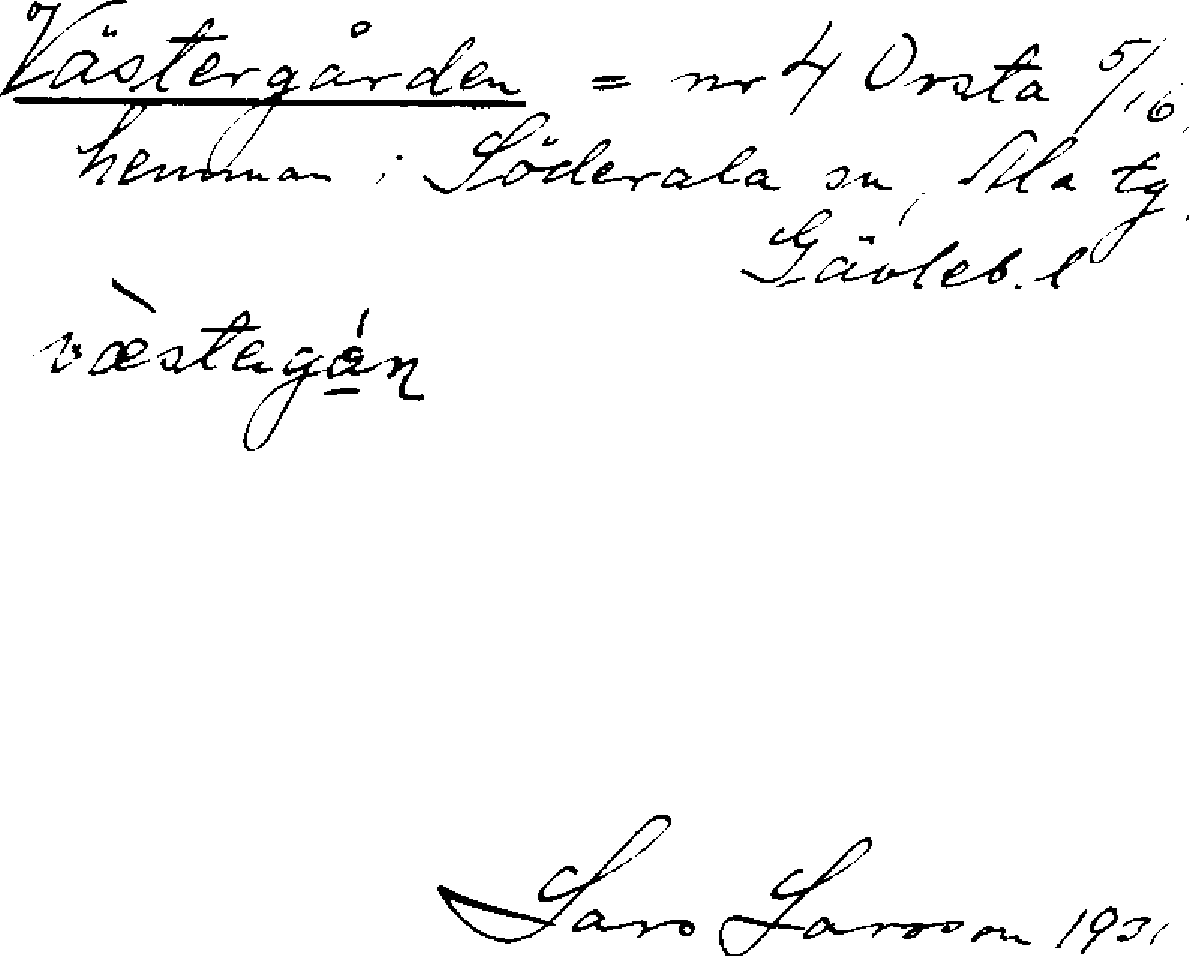 Västergården = nr 4 Orsta 5/16
hemman i Söderala sn, Ala tg.
Gävleb. l
væ̀stagá̱n
Lars Larsson 1931